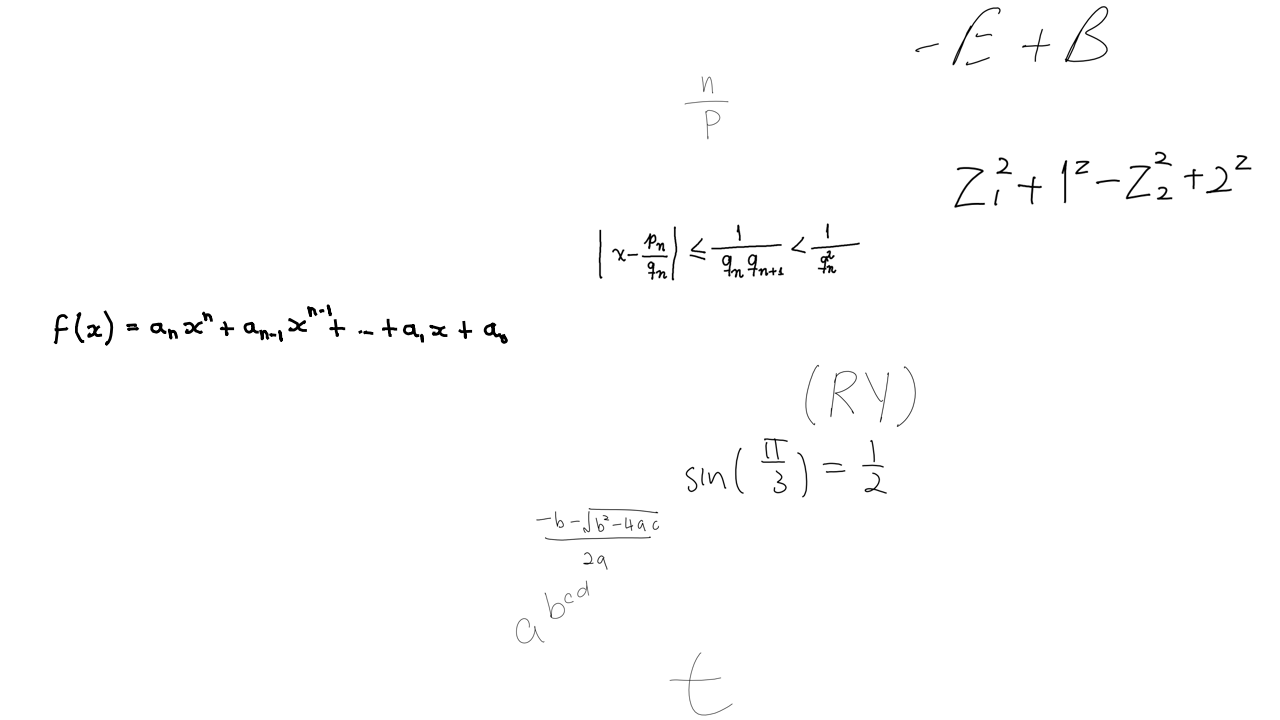 -E + B
\frac{n}{p}
z_1^2 + 1^2 - z_2^2 + 2^2
\left| x - \frac{p_n}{q_n} \right| \leq \frac{1}{q_n q_{n+1}} < \frac{1}{q_n^2}
f(x) = a_n x^n + a_{n-1} x^{n-1} + \ldots + a_1 x + a_0
(RY)
\sin\left(\frac{\pi}{3}\right) = \frac{1}{2}
\frac{-b - \sqrt{b^2 - 4ac}}{2a}
a^{b^{cd}}
t